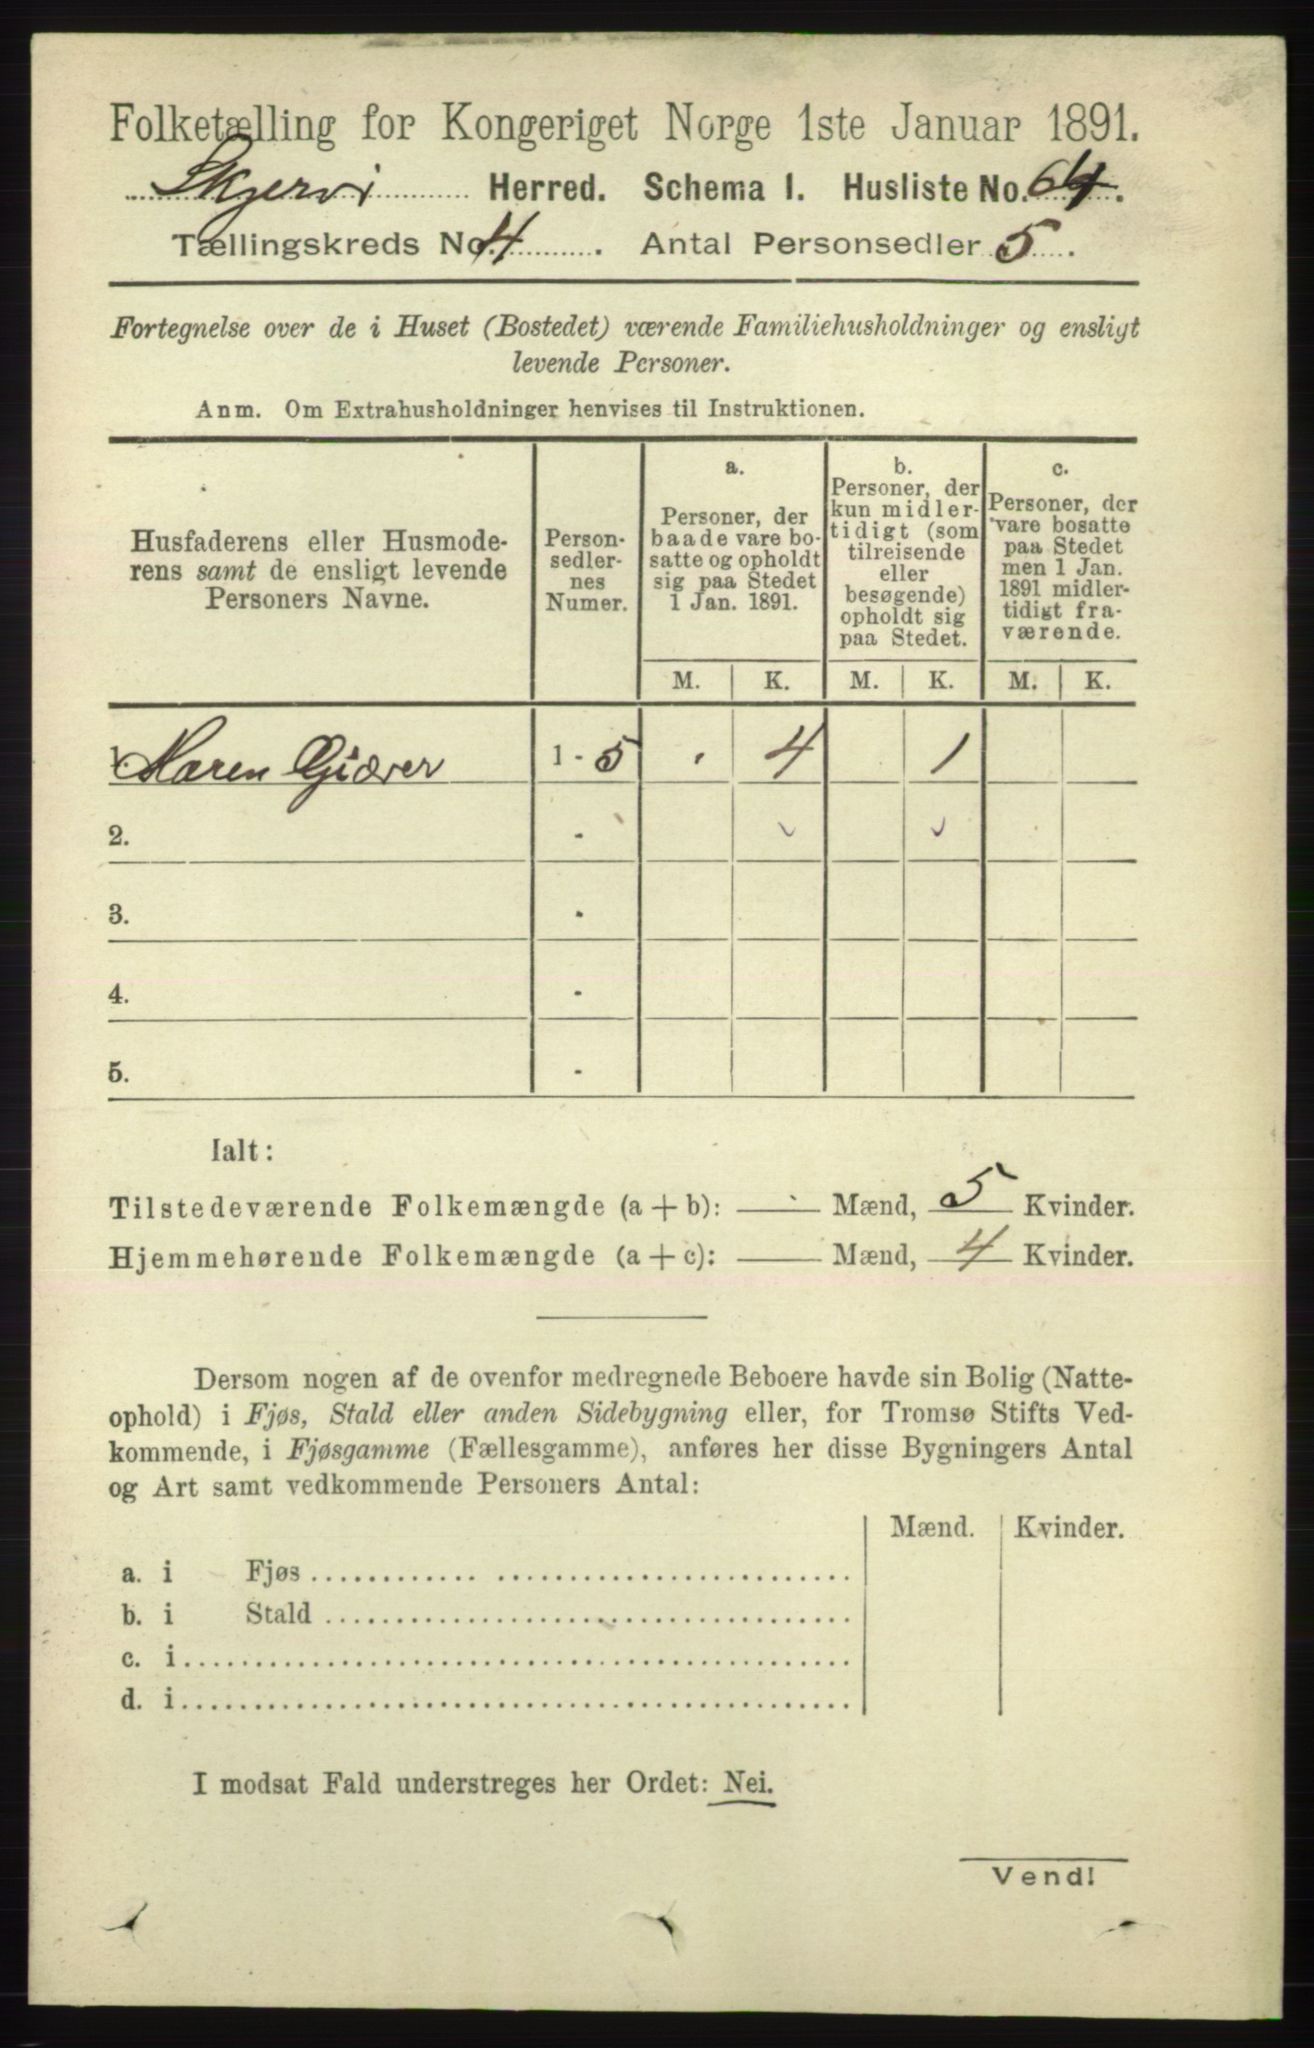 Folketælling for Kongeriget Norge 1ste Januar 1891.
Skjervi Herred. Schema I. Husliste No. 64.
Tællingskreds No. 4. Antal Personsedler 5.
Fortegnelse over de i Huset (Bostedet) værende Familiehusholdninger og ensligt
levende Personer.
Anm. Om Extrahusholdninger henvises til Instruktionen.
Husfaderens eller Husmode-
rens samt de ensligt levende
Personers Navne.
Person-
sedler-
nes
Numer.
a.
Personer, der
baade vare bo-
satte og opholdt
sig paa Stedet
1 Jan. 1891.
b.
Personer, der
kun midler-
tidigt (som
tilreisende
eller
besøgende)
opholdt sig
paa Stedet.
c.
Personer, der
vare bosatte
paa Stedet
men 1 Jan.
1891 midler-
tidigt fra-
værende.
M. K. M. K. M. K.
1. Maren Giæver 1 - 5 . 4 1
2. -
3. -
4. -
5. -
Ialt:
Tilstedeværende Folkemængde (a + b): Mænd, 5 Kvinder.
Hjemmehørende Folkemængde (a + c): Mænd, 4 Kvinder.
Dersom nogen af de ovenfor medregnede Beboere havde sin Bolig (Natte-
ophold) i Fjøs, Stald eller anden Sidebygning eller, for Tromsø Stifts Ved-
kommende, i Fjøsgamme (Fællesgamme), anføres her disse Bygningers Antal
og Art samt vedkommende Personers Antal:
Mænd. Kvinder.
a. i Fjøs
b. i Stald
c. i
d. i
I modsat Fald understreges her Ordet: Nei.
Vend!